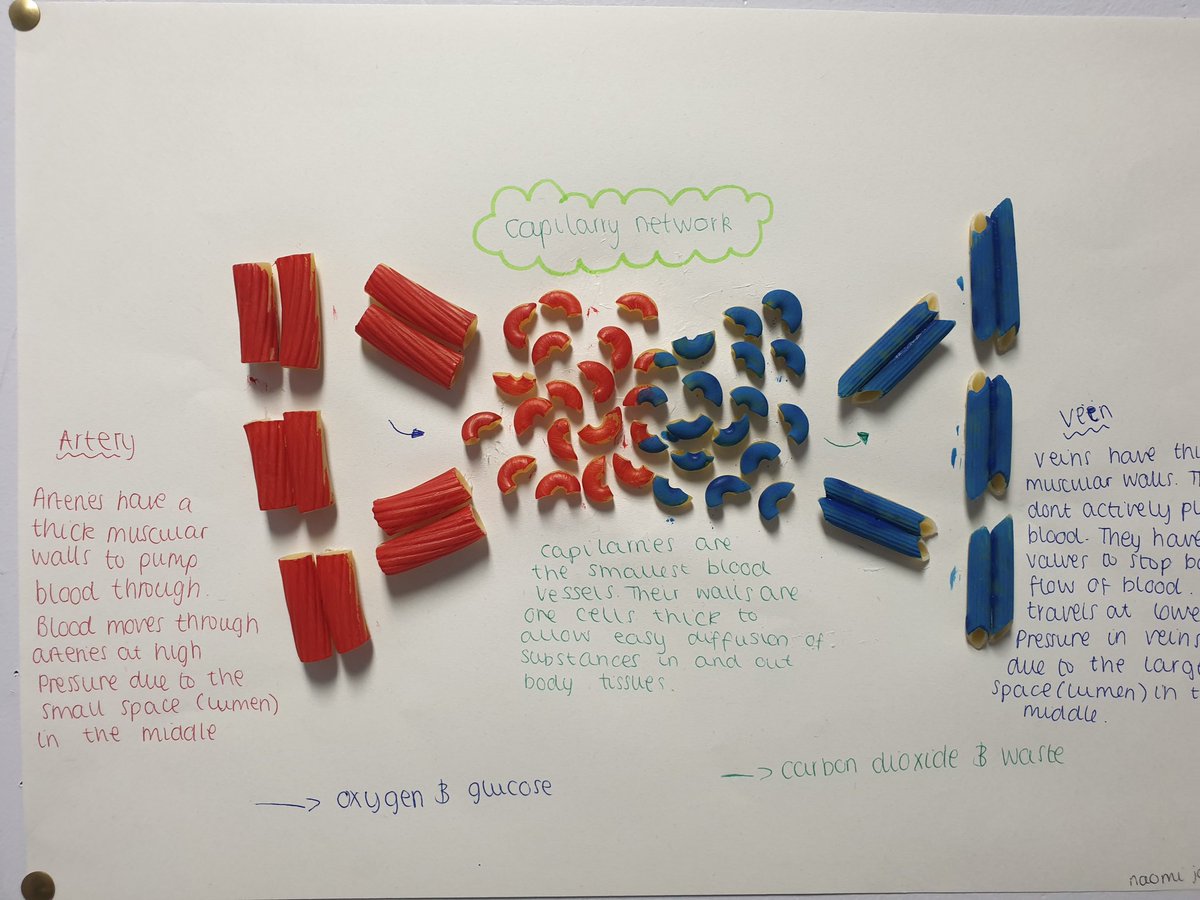 capilarry network
Artery
Arteries have a
thick muscular
walls to pump
blood through.
Blood moves through
arteries at high
pressure due to the
small space (lumen)
in the middle
capilarries are
the smallest blood
vessels. Their walls are
one cells thick to
allow easy diffusion of
substances in and out
body tissues.
veen
veins have
muscular walls.
dont actively
blood. They have
valves to stop
flow of blood.
travels at
Pressure in veins
due to the
space (lumen) in
middle.
→ oxygen & glucose
→ carbon dioxide & waste
naomi